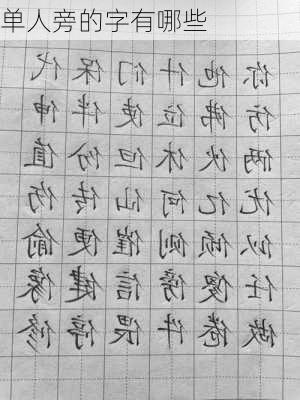 单人旁的字有哪些
你他什们保代
仿佛位使伴伸
俩伙休但份值
优亿何仙传伤
似倾侧催便偷
任傻傍信健像
做倦件偎停修